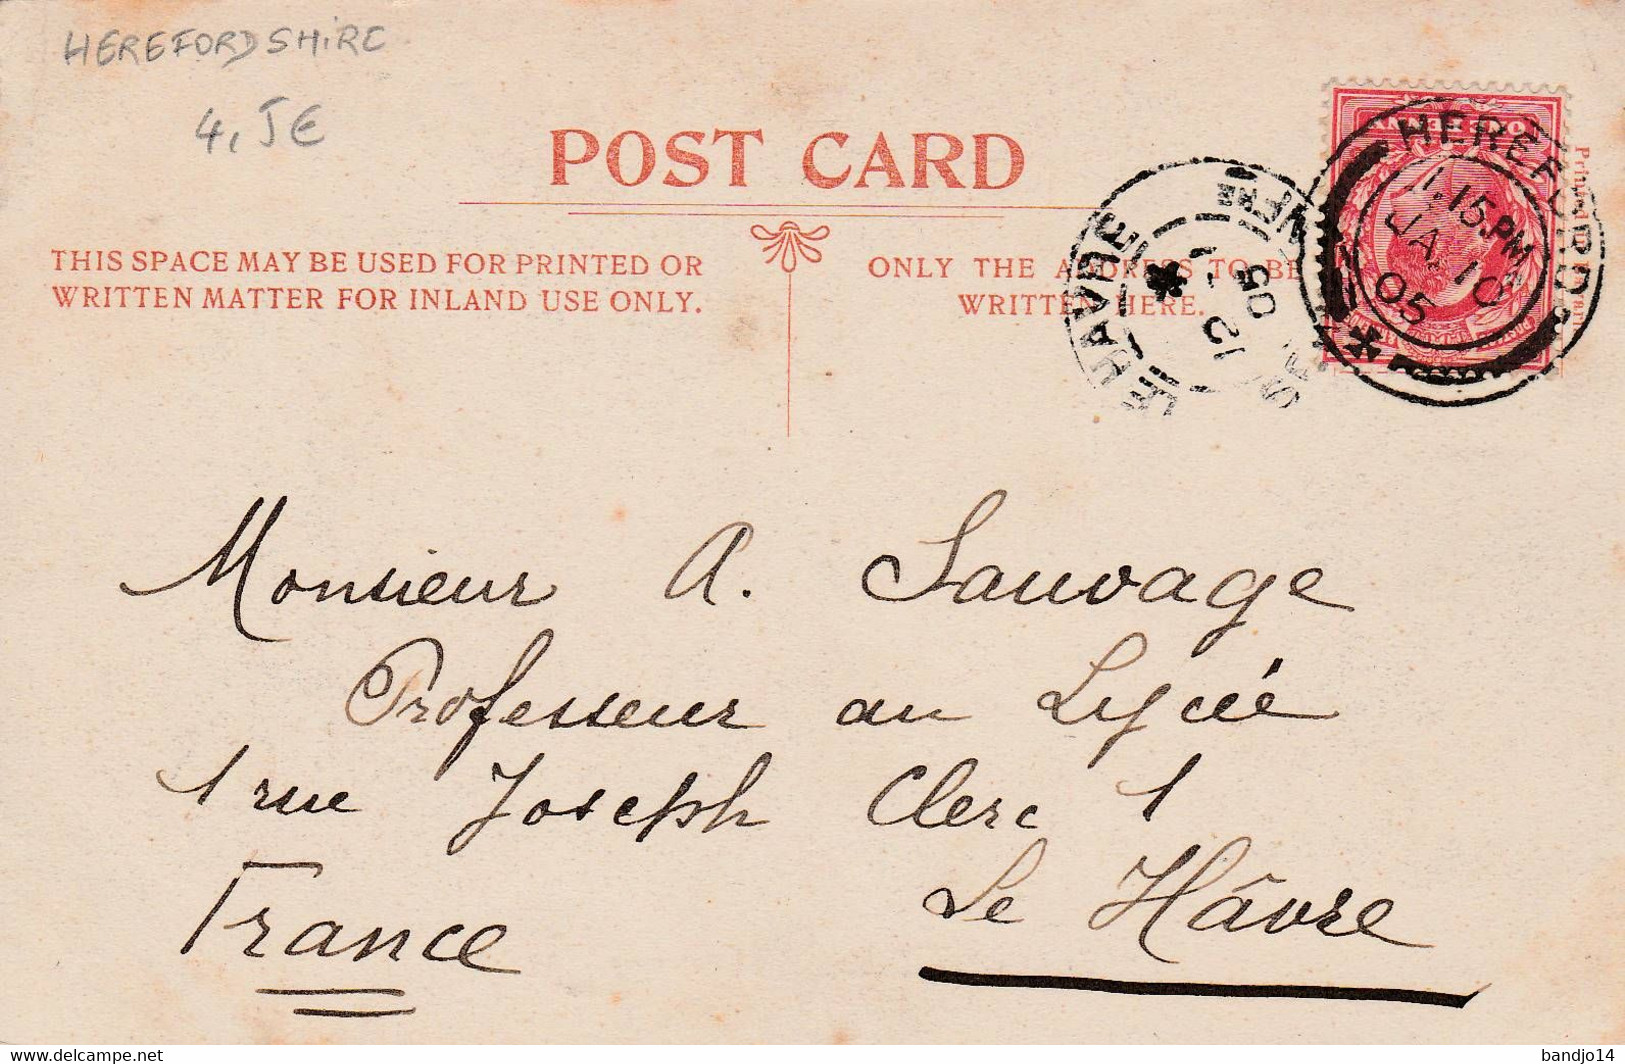 HEREFORDSHIRE
4, JE
POST CARD
THIS SPACE MAY BE USED FOR PRINTED OR
WRITTEN MATTER FOR INLAND USE ONLY.
ONLY THE ADDRESS TO BE
WRITTEN HERE.
LE HAVRE
12
05
HEREFORD
1.15.PM
JA 10
05
Printed
Monsieur A. Sauvage
Professeur au Lycée
1 rue Joseph Clerc 1
Le Hâvre
France
bandjo14